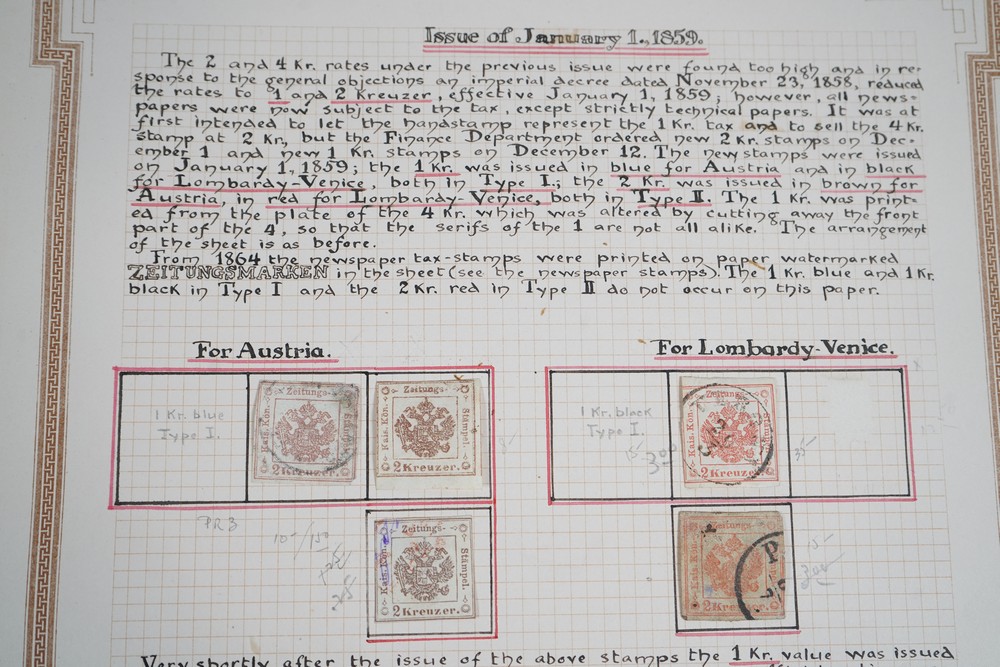 Issue of January 1., 1859.
The 2 and 4 Kr. rates under the previous issue were found too high and in re-
sponse to the general objections an imperial decree dated November 23, 1858, reduced
the rates to 1 and 2 Kreuzer, effective January 1, 1859; however, all news-
papers were now subject to the tax, except strictly technical papers. It was at
first intended to let the handstamp represent the 1 Kr. tax and to sell the 4 Kr.
stamp at 2 Kr., but the Finance Department ordered new 2 Kr. stamps on Dec-
ember 1 and new 1 Kr. stamps on December 12. The new stamps were issued
on January 1, 1859; the 1 Kr. was issued in blue for Austria and in black
for Lombardy-Venice, both in Type I.; the 2 Kr. was issued in brown for
Austria, in red for Lombardy-Venice, both in Type II. The 1 Kr. was print-
ed from the plate of the 4 Kr. which was altered by cutting away the front
part of the 4, so that the serifs of the 1 are not all alike. The arrangement
of the sheet is as before.
From 1864 the newspaper tax-stamps were printed on paper watermarked
ZEITUNGSMARKEN in the sheet (see the newspaper stamps). The 1 Kr. blue and 1 Kr.
black in Type I and the 2 Kr. red in Type II do not occur on this paper.
For Austria.
1 Kr. blue
Type I.
Zeitungs-
Kais. Kön.
Stämpel.
2 Kreuzer.
Zeitungs-
Kais. Kön.
Stämpel.
2 Kreuzer.
PR3
Zeitungs-
Kais. Kön.
Stämpel.
2 Kreuzer.
For Lombardy-Venice.
1 Kr. black
Type I.
15-
300
Zeitungs-
Kais. Kön.
Stämpel.
2 Kreuzer.
35-
Zeitungs-
Kais. Kön.
2 Kreuzer.
P
15-
300
Very shortly after the issue of the above stamps the 1 Kr. value was issued